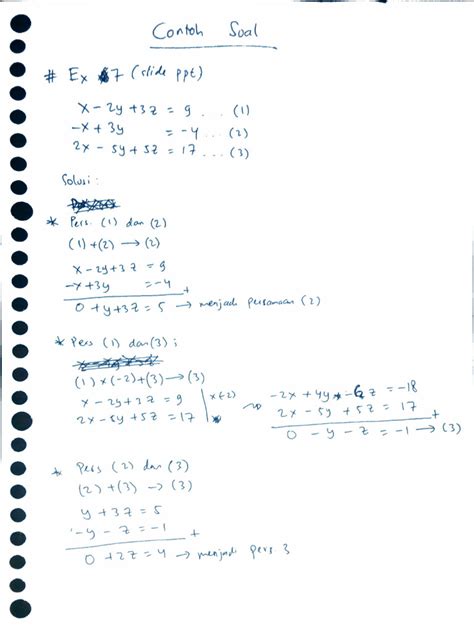 Contoh Soal
# Ex 7 (slide ppt)
x - 2y + 3z = 9 ... (1)
-x + 3y = -4 ... (2)
2x - 5y + 5z = 17 ... (3)
Solusi :
* Pers. (1) dan (2)
(1) + (2) → (2)
x - 2y + 3z = 9
-x + 3y = -4 +
0 + y + 3z = 5 → menjadi persamaan (2)
* Pers (1) dan (3) ;
(1) x (-2) + (3) → (3)
x - 2y + 3z = 9 | x(-2)
2x - 5y + 5z = 17 |
-2x + 4y - 6z = -18
2x - 5y + 5z = 17 +
0 - y - z = -1 → (3)
* Pers (2) dan (3)
(2) + (3) → (3)
y + 3z = 5
-y - z = -1 +
0 + 2z = 4 → menjadi pers. 3